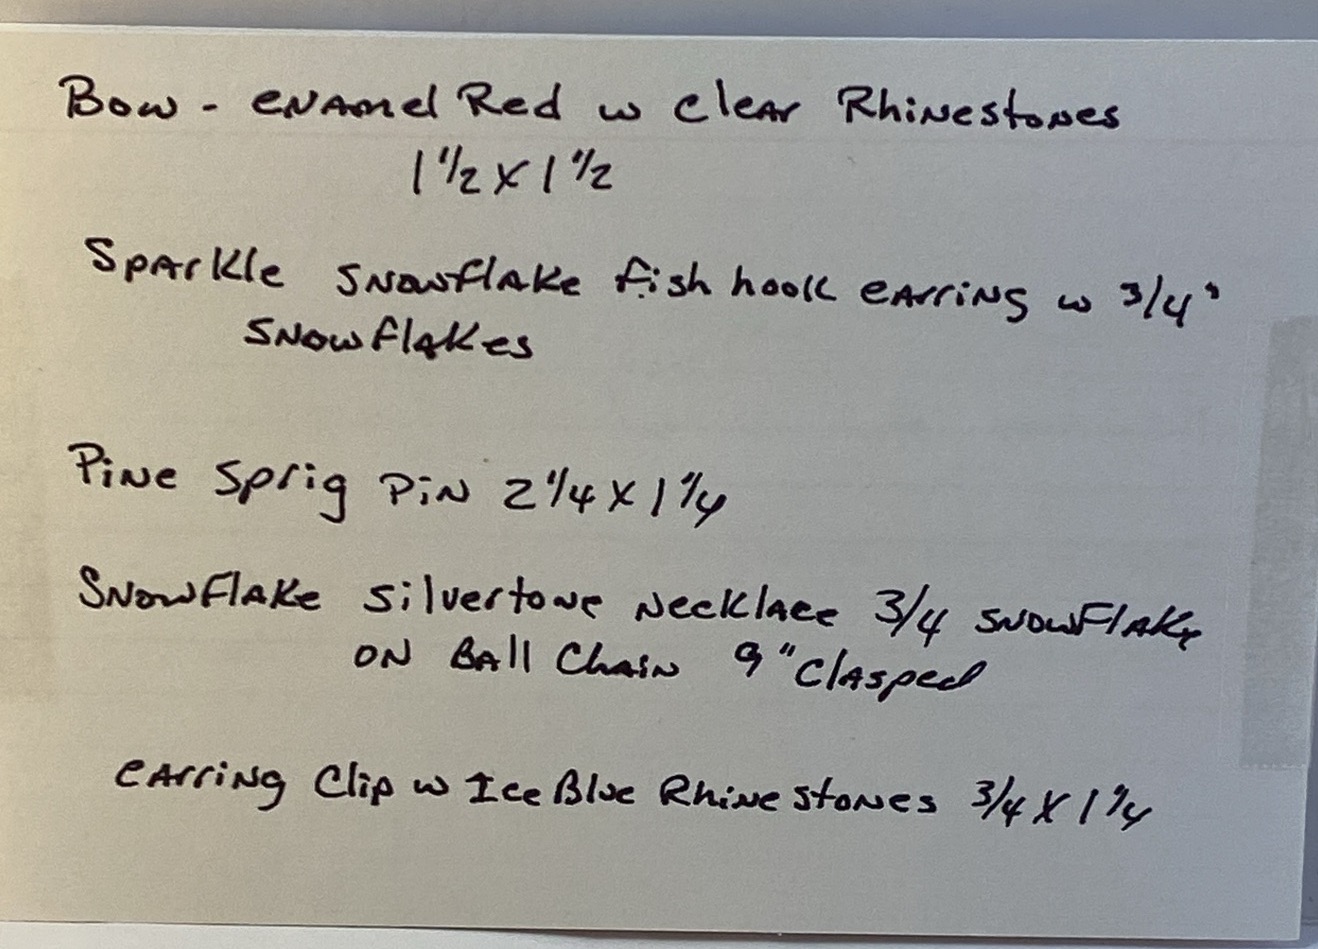 Bow - enamel Red w Clear Rhinestones
1 1/2 x 1 1/2
Sparkle Snowflake fish hook earring w 3/4"
Snowflakes
Pine Sprig Pin 2 1/4 x 1 1/4
Snowflake Silvertone Necklace 3/4 Snowflake
on Ball Chain 9" Clasped
earring Clip w Ice Blue Rhinestones 3/4 x 1 1/4